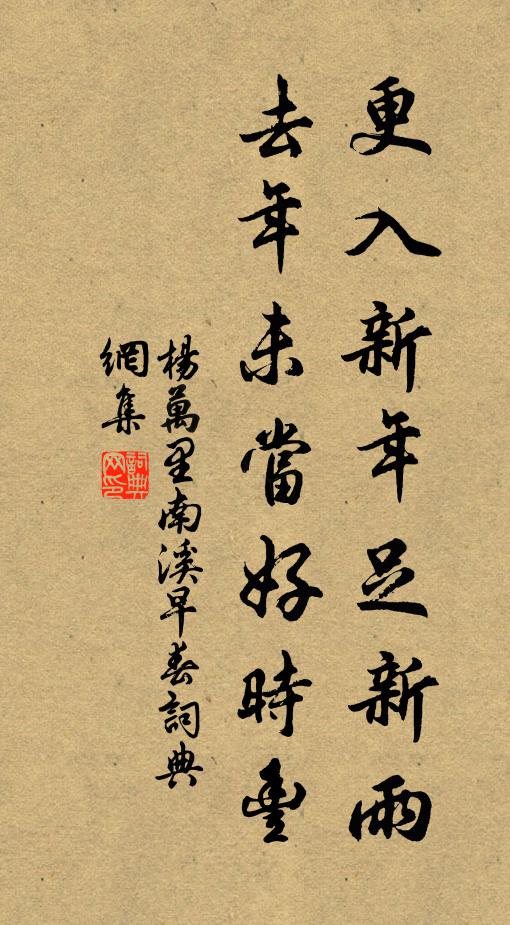 更入新年足新雨
去年未當好時豐
楊萬里南溪早春詞典
網集
詞典網印